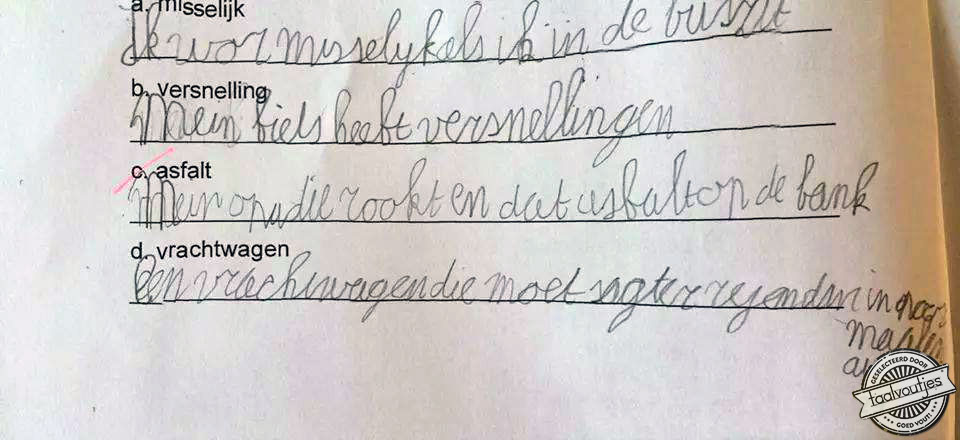 a. misselijk
Ik wor misselyk els ik in de bus zit
b. versnelling
Mein fiets heeft versnellingen
c. asfalt
Mein opa die rookt en dat asfalt op de bank
d. vrachtwagen
Een vrachtwagen die moet agter
in
GESELECTEERD DOOR
taalvoutjes
GOED VOUT!